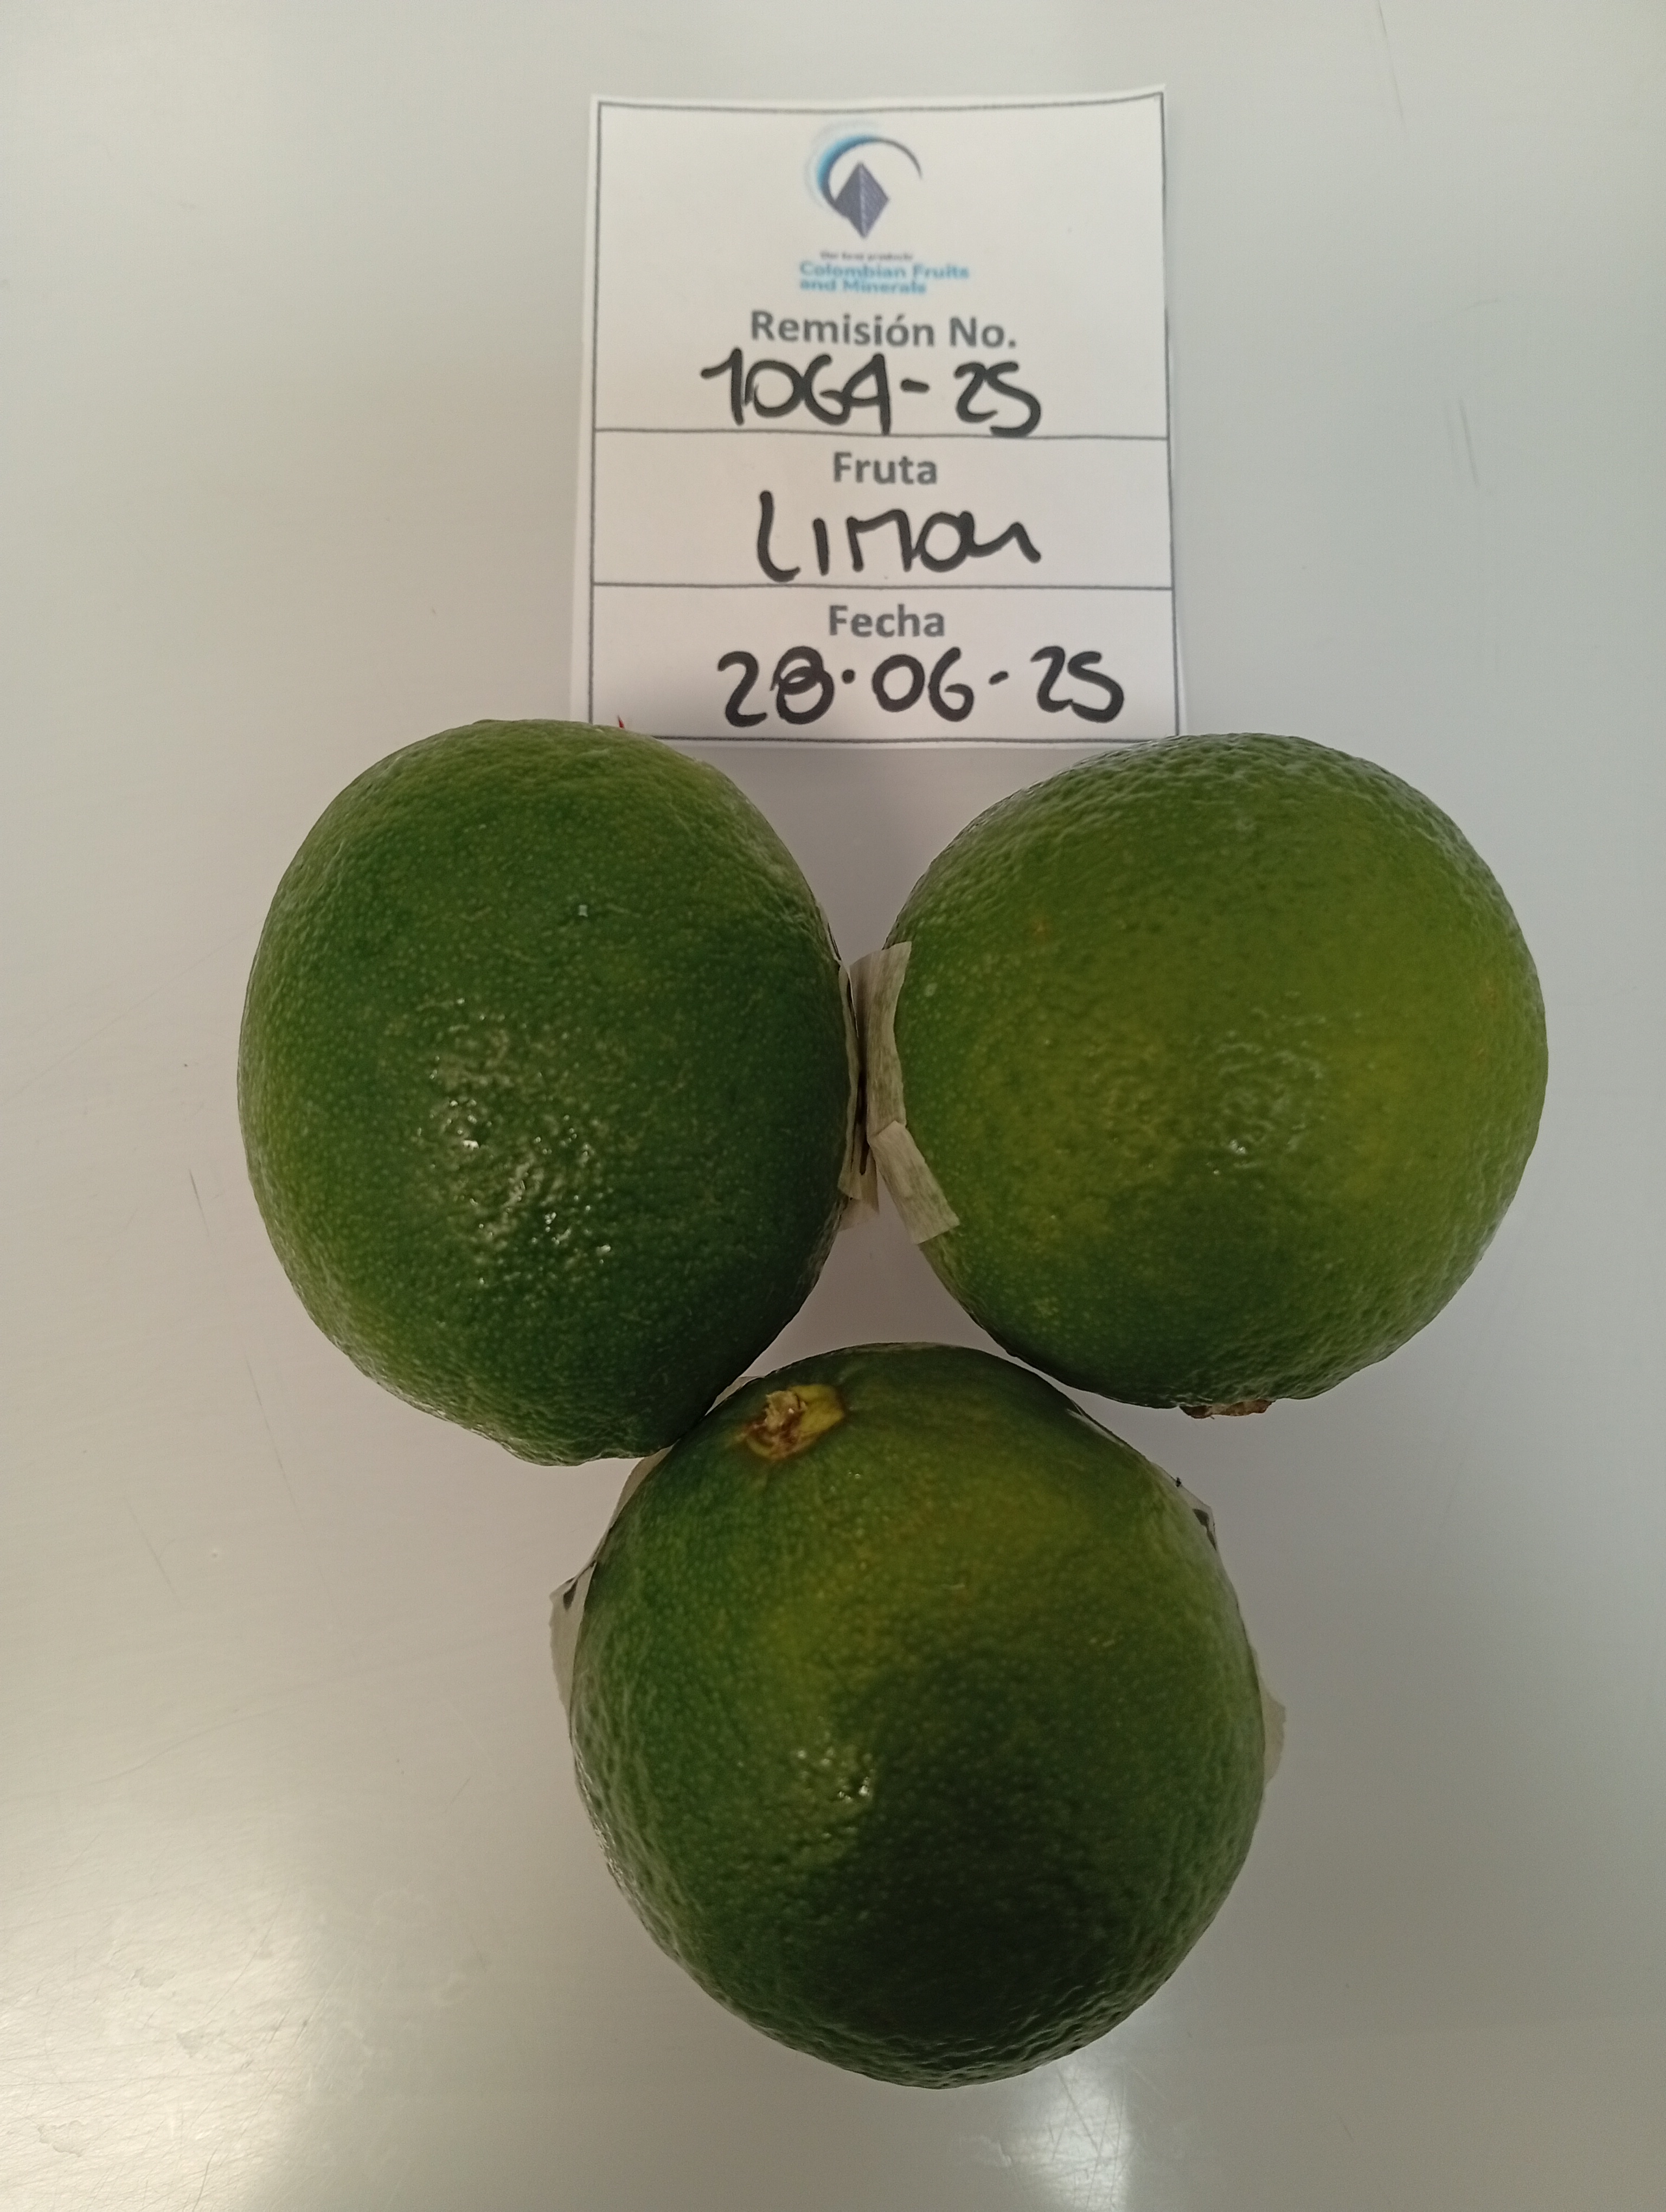 Our best products
Colombian Fruits
and Minerals
Remisión No.
1064-25
Fruta
Limon
Fecha
28·06-25